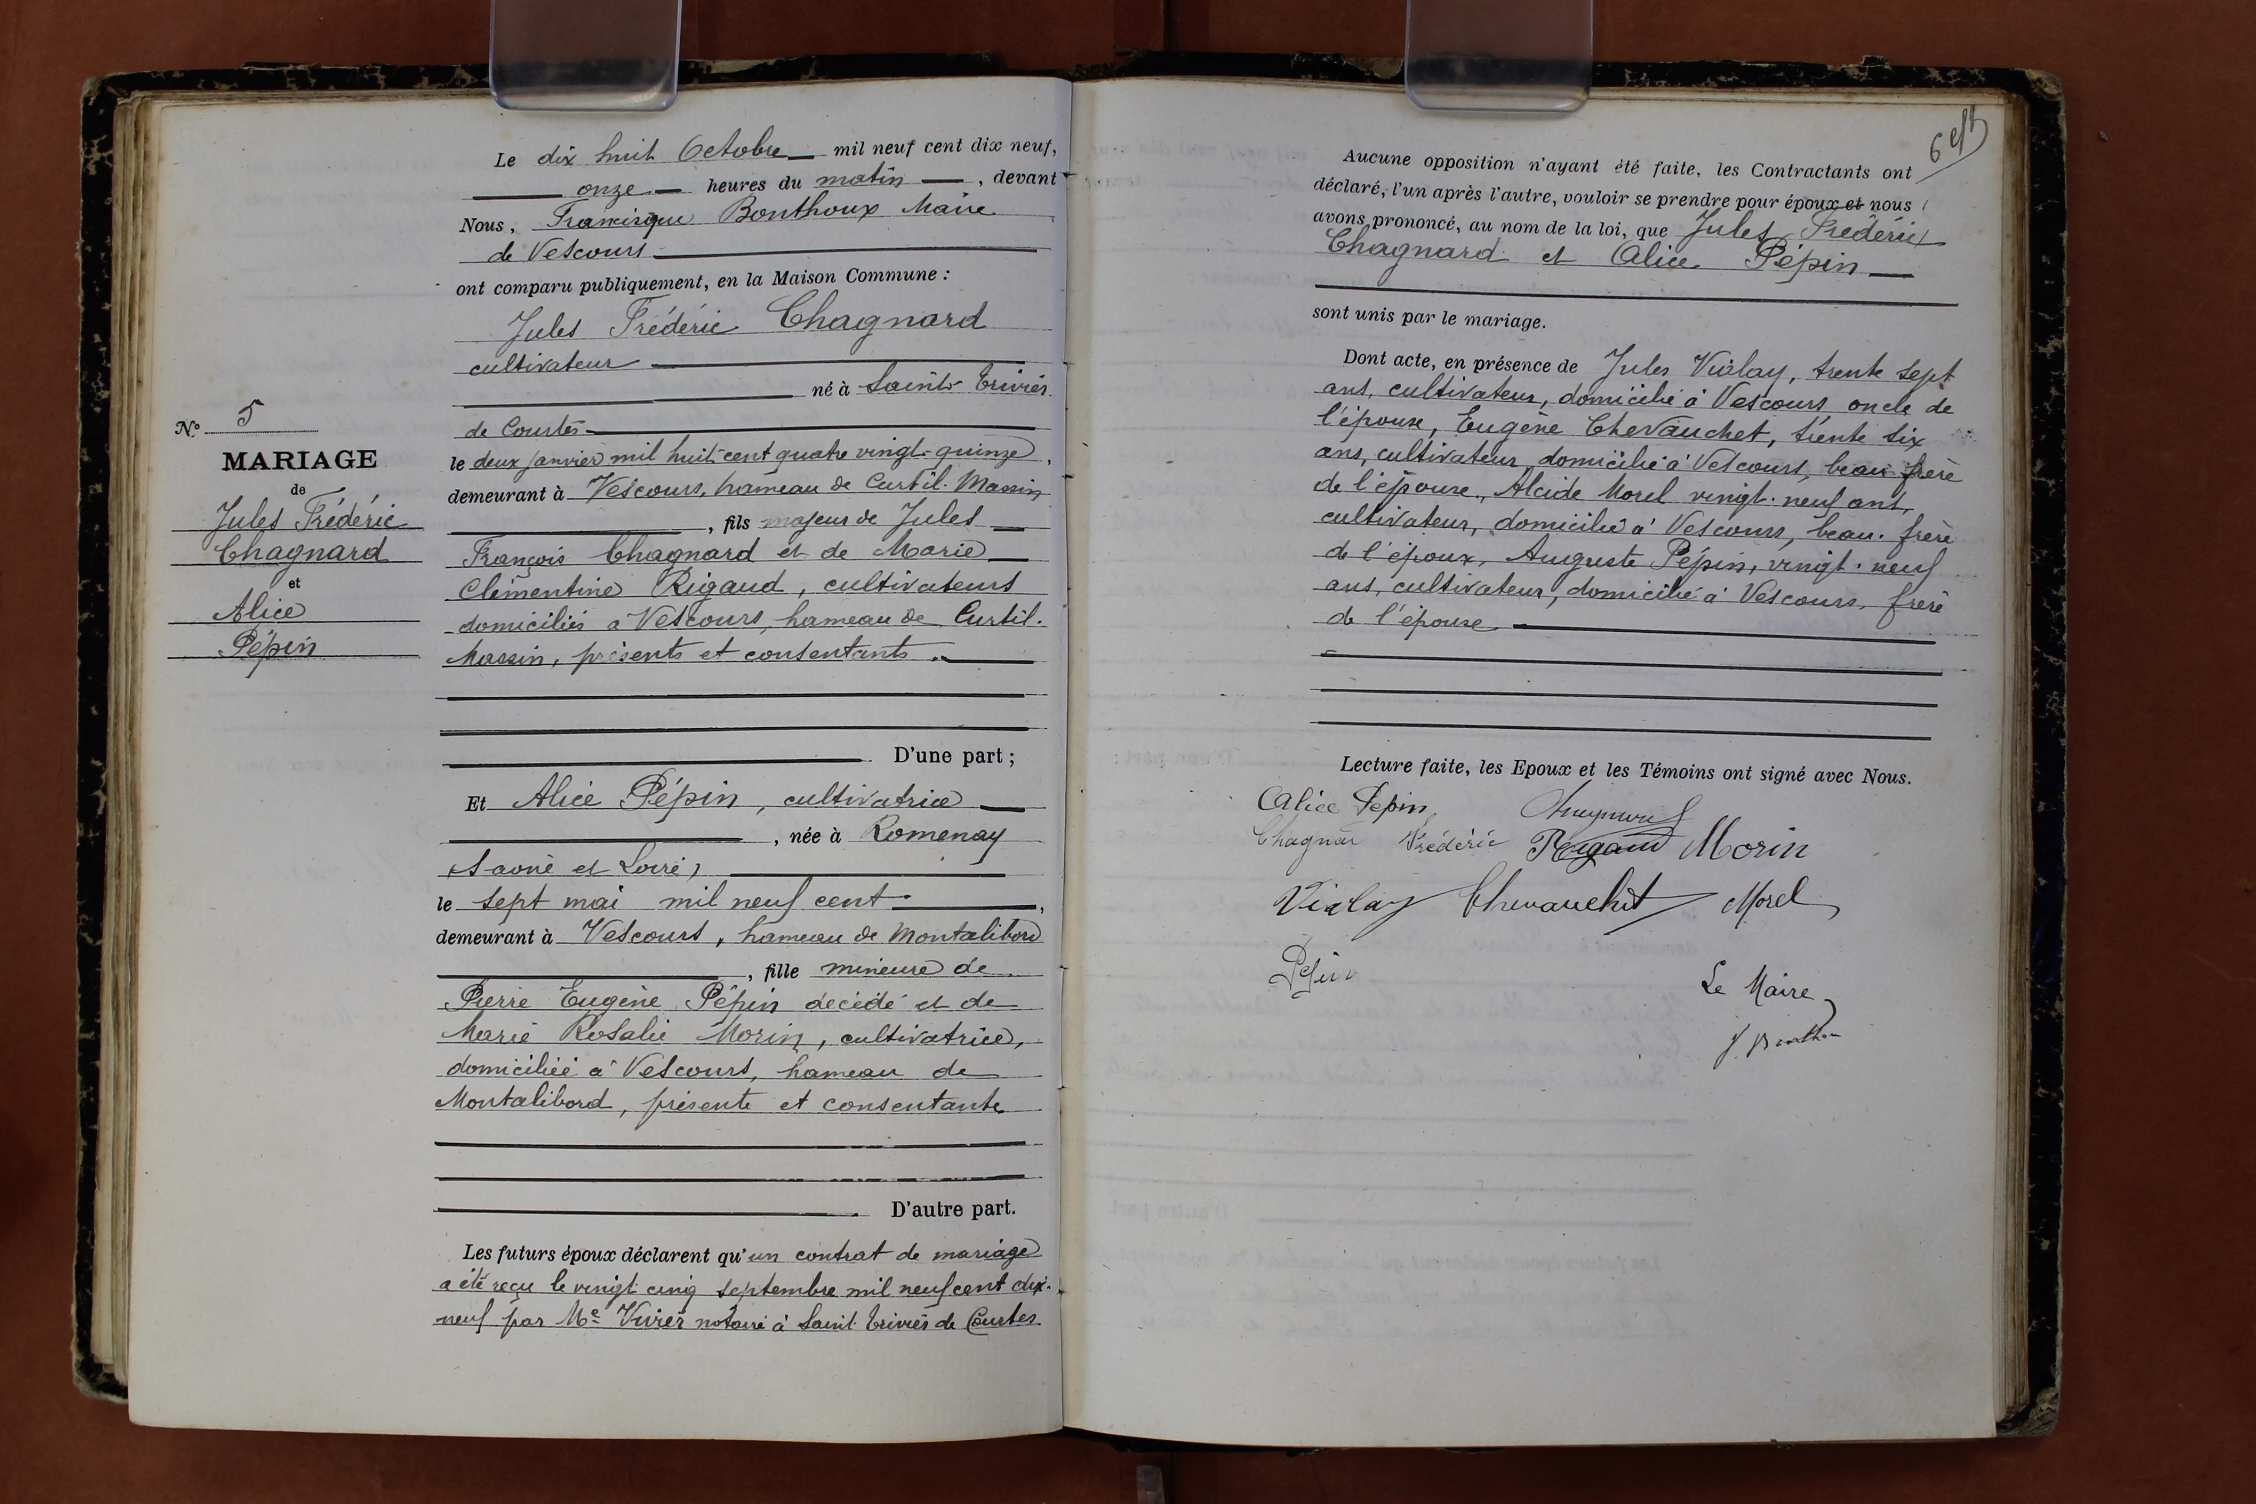 Le dix huit Octobre mil neuf cent dix neuf,
onze heures du matin, devant
Nous, Francisque Bonthoux Maire
de Vescours
ont comparu publiquement, en la Maison Commune :
Jules Frédéric Chagnard
cultivateur
né à Saint-Trivier
de Courtes
le deux janvier mil huit cent quatre vingt-quinze,
demeurant à Vescours, hameau de Curtil-Massin
, fils majeur de Jules
François Chagnard et de Marie
Clémentine Rigaud, cultivateurs
domiciliés à Vescours, hameau de Curtil-
Massin, présents et consentants.
D'une part ;
Et Alice Pépin, cultivatrice
, née à Romenay
(Saône et Loire)
le sept mai mil neuf cent,
demeurant à Vescours, hameau de Montalibord
, fille mineure de
Pierre Eugène Pépin décédé et de
Marie Rosalie Morin, cultivatrice,
domiciliée à Vescours, hameau de
Montalibord, présente et consentante
D'autre part.
Les futurs époux déclarent qu'un contrat de mariage
a été reçu le vingt cinq septembre mil neuf cent dix-
neuf par Me Vivier notaire à Saint-Trivier de Courtes
N° 5
MARIAGE
de
Jules Frédéric
Chagnard
et
Alice
Pépin
Aucune opposition n'ayant été faite, les Contractants ont
déclaré, l'un après l'autre, vouloir se prendre pour époux et nous
avons prononcé, au nom de la loi, que Jules Frédéric
Chagnard et Alice Pépin
sont unis par le mariage.
Dont acte, en présence de Jules Vialay, trente sept
ans, cultivateur, domicilié à Vescours, oncle de
l'épouse, Eugène Chevauchet, trente six
ans, cultivateur domicilié à Vescours, beau-frère
de l'épouse, Alcide Morel vingt-neuf ans,
cultivateur, domicilié à Vescours, beau-frère
de l'époux, Auguste Pépin, vingt-neuf
ans, cultivateur, domicilié à Vescours, frère
de l'épouse
Lecture faite, les Epoux et les Témoins ont signé avec Nous.
Alice Pépin
Frédéric Rigaud Morin
Vialay Chevauchet Morel
Pépin
Le Maire